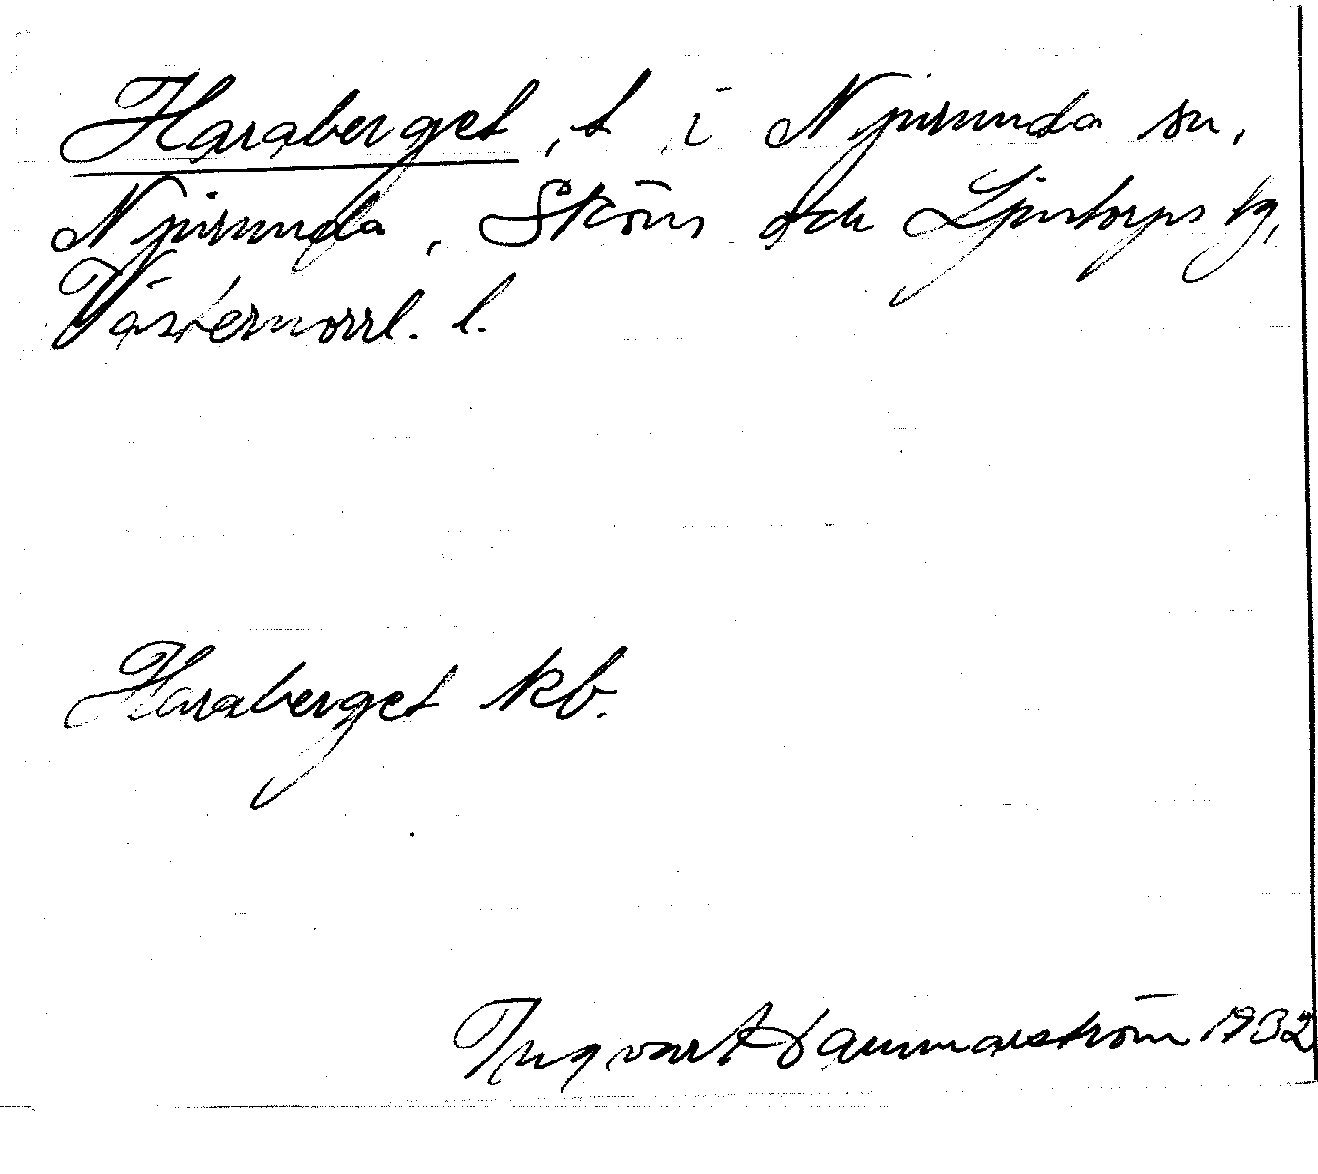 Haraberget, t i Njurunda sn,
Njurunda, Sköns och Ljustorps tg,
Västernorrl. l.
Haraberget kb.
Ingvar Hammarström 1932